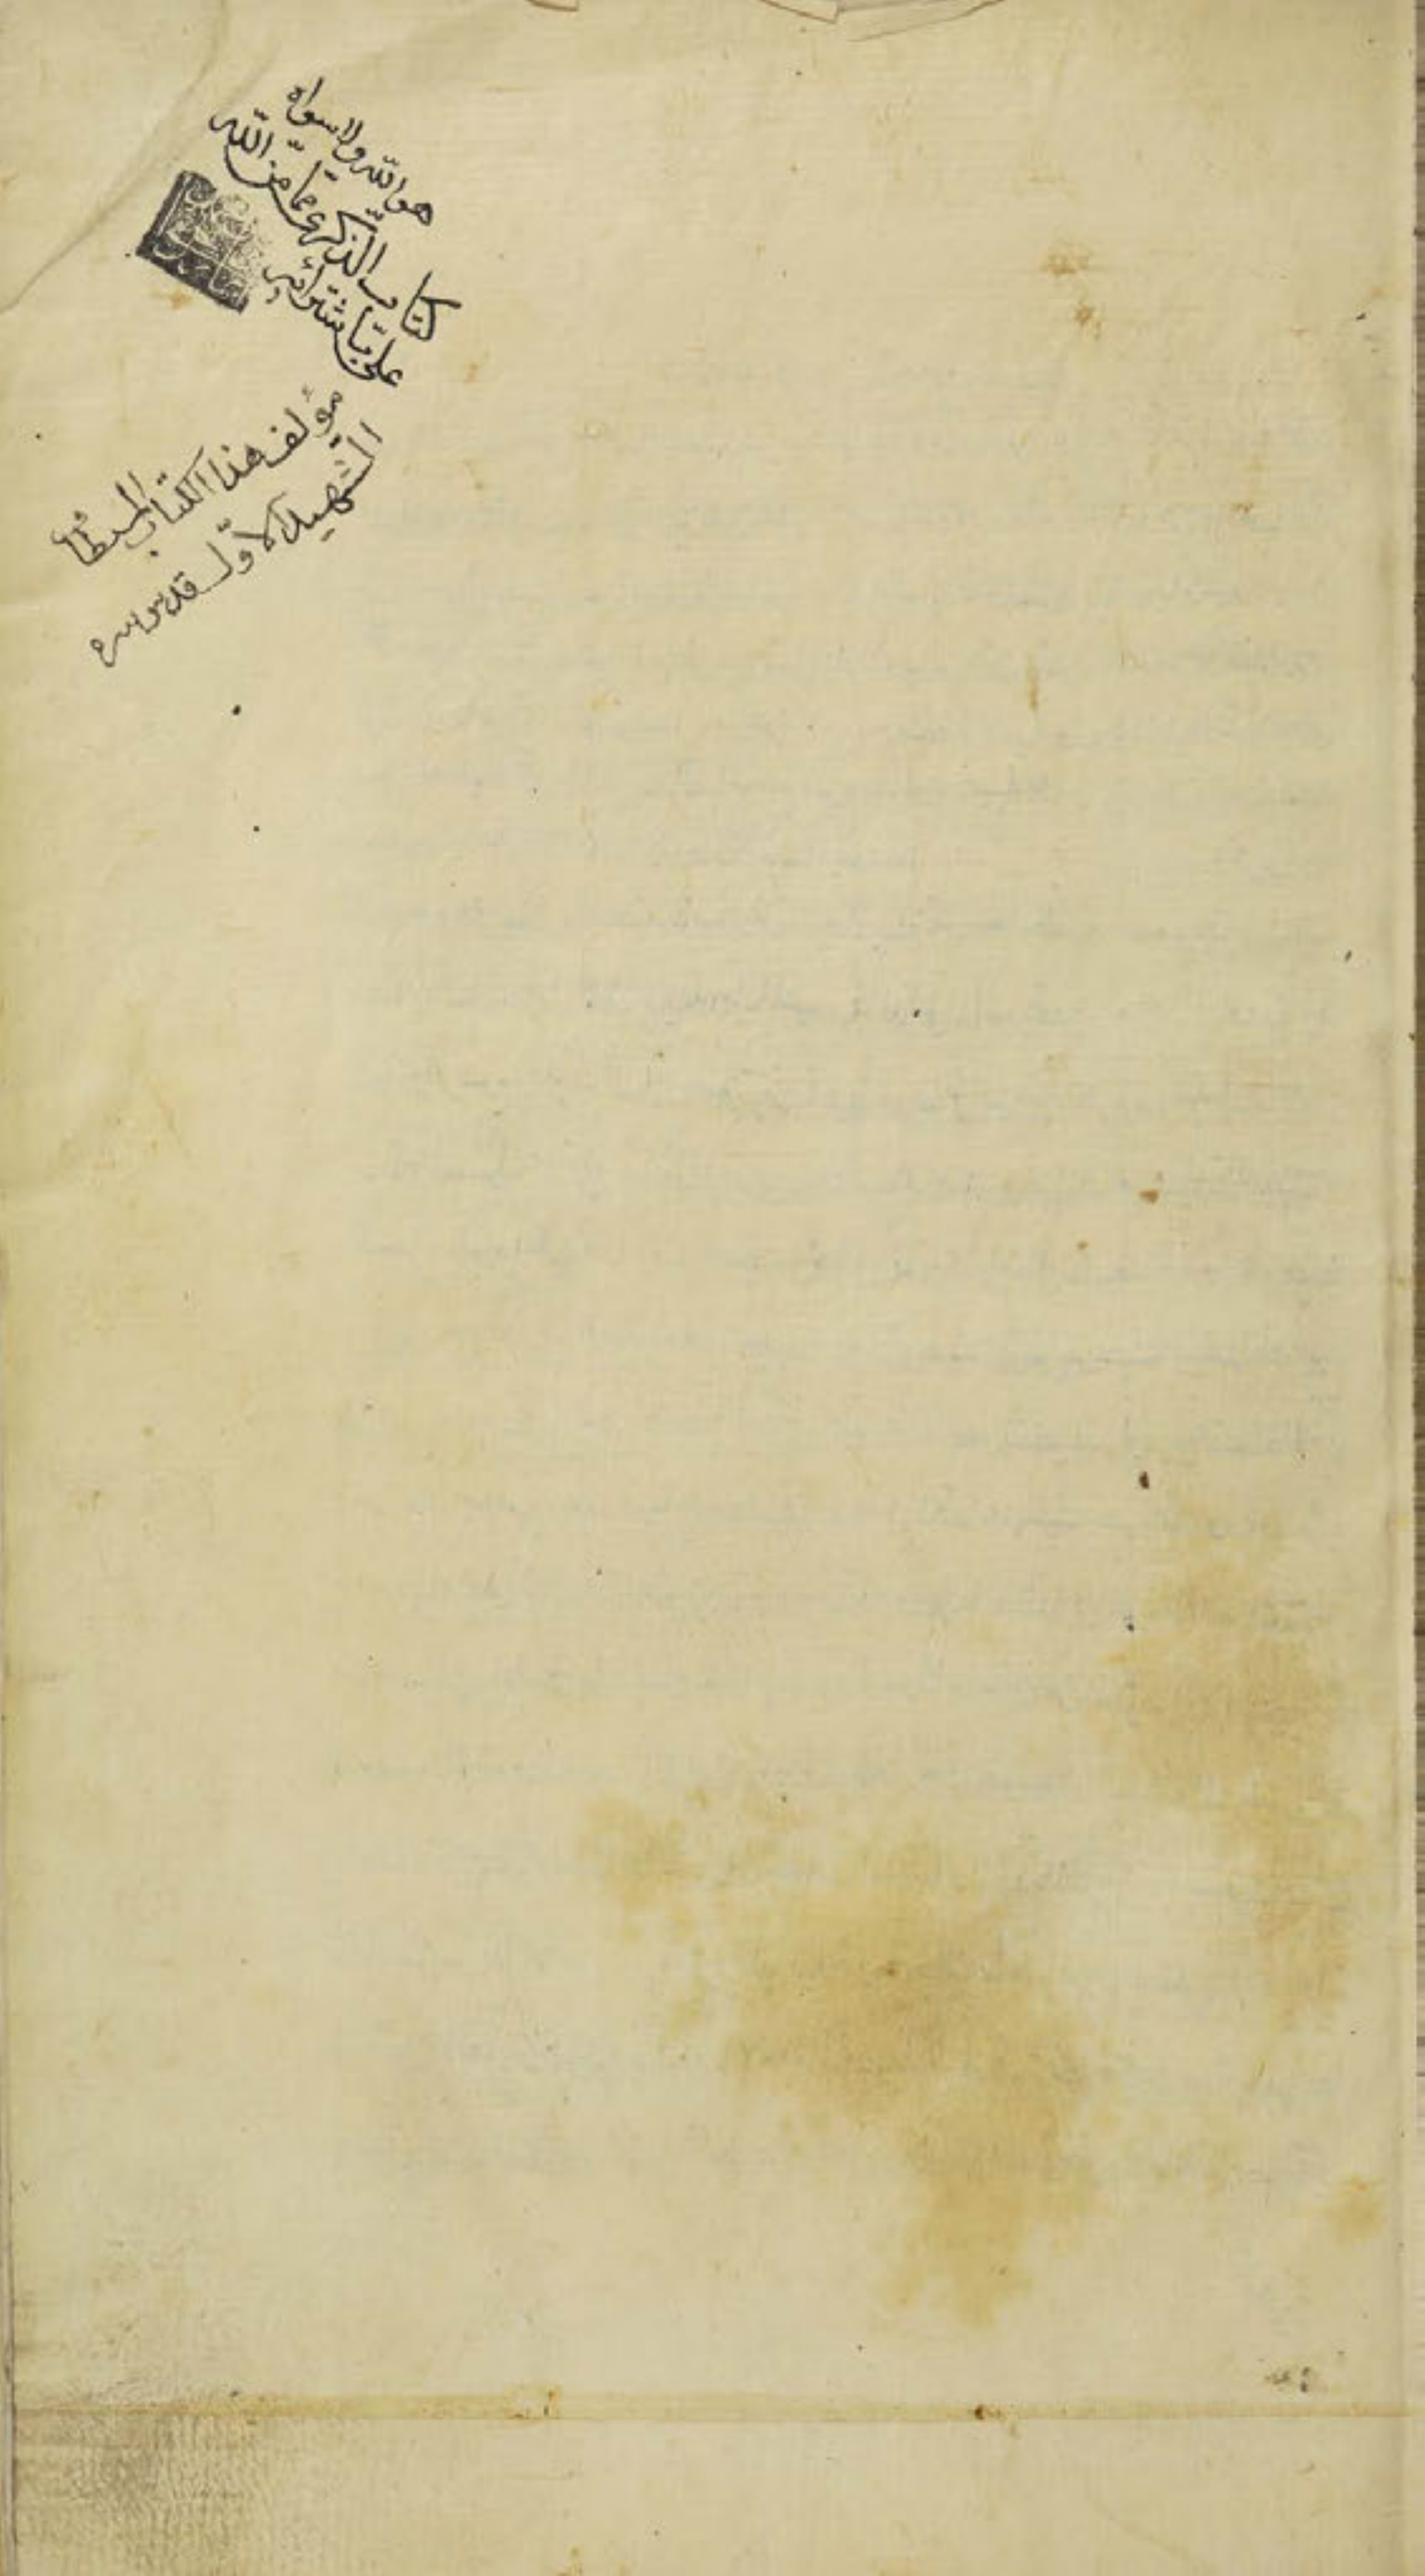 هو الله ولا سواه
كتاب الذكرى ممّا منّ الله
عليّ باشترائه
مؤلف هذا الكتاب المستطاب
الشهيد الاوّل قدس سره